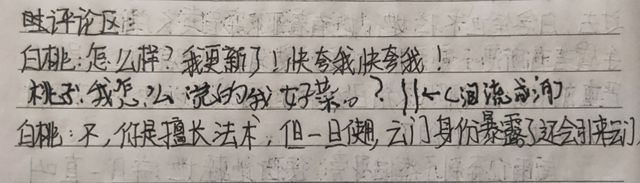 时评论区:
白桃:怎么样?我更新了!快夸我快夸我!
桃子:我怎么说的我好菜。。?||←(泪流成河)
白桃:不,你是擅长法术,但一旦使用,云门身份暴露了还会引来云门